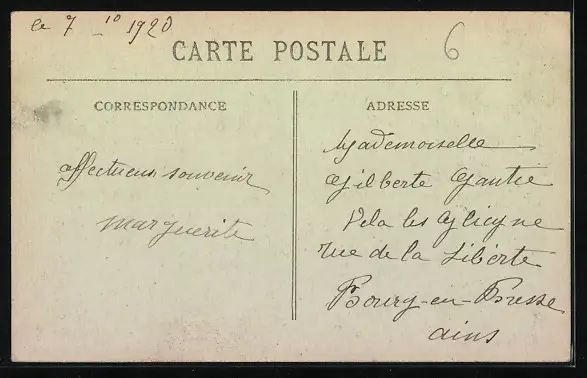 le 7 - 10 1920
CARTE POSTALE
6
CORRESPONDANCE
ADRESSE
affectueux souvenir
marguerite
Mademoiselle
Gilberte Gautie
Vela les Glicyne
rue de la Liberte
Bourg-en-Bresse
ains